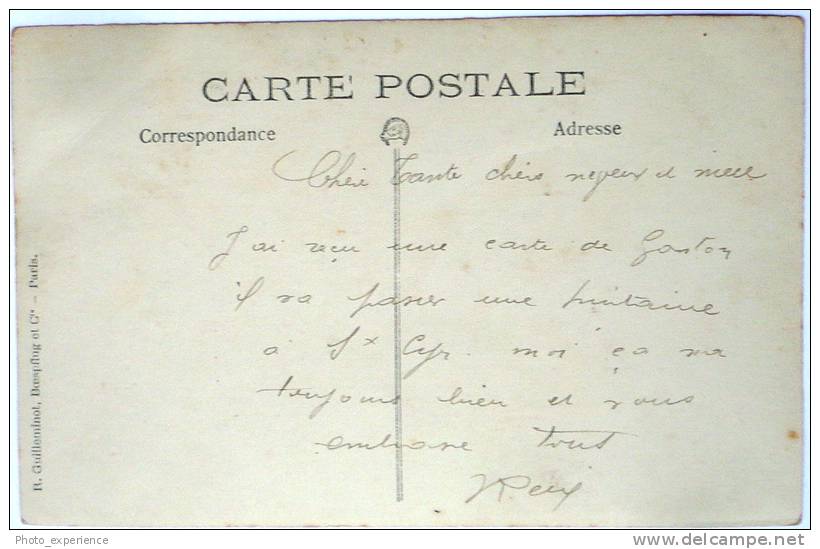 CARTE POSTALE
Correspondance
Adresse
Chère Tante chers neveux et niece
J'ai reçu une carte de Gaston
il va passer une
à St Cyr. moi ça va
toujours bien et vous
embrasse tous
R. Guilleminot, Bœspflug et Cie — Paris.
Photo_experience
delcampe.net